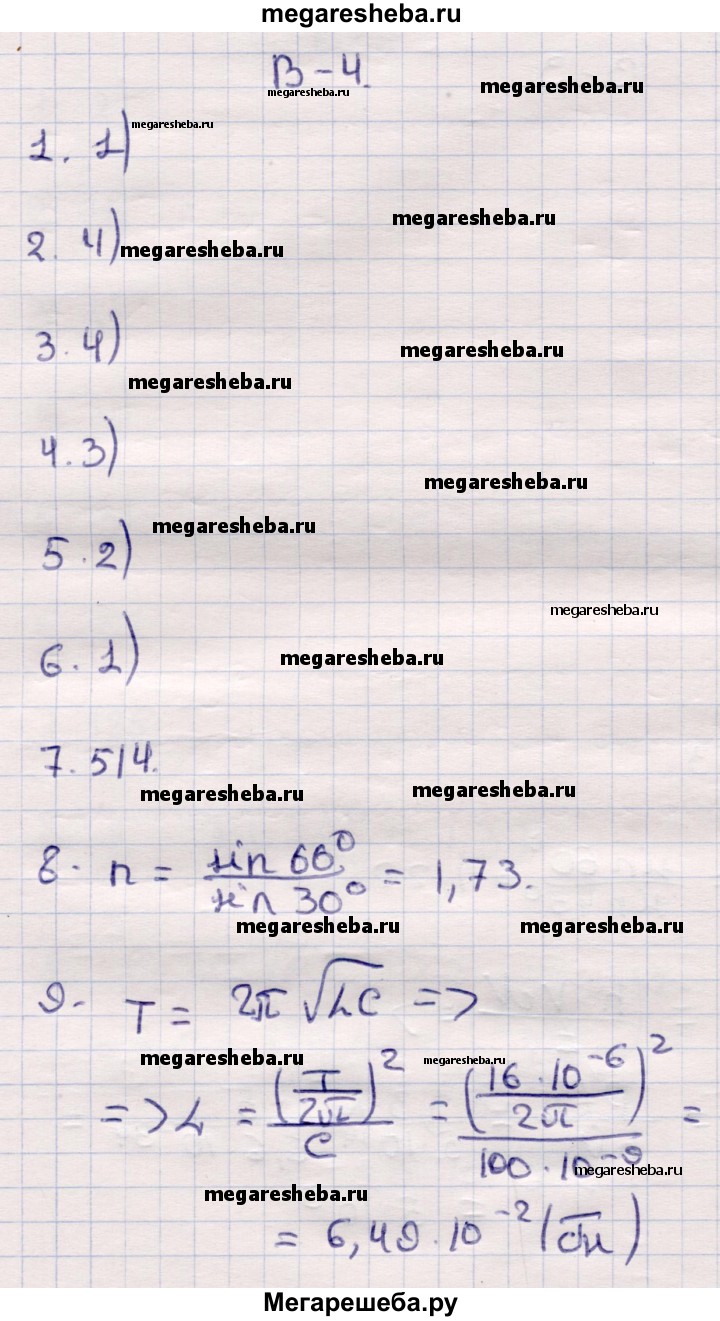 megaresheba.ru
В-4.
megaresheba.ru
megaresheba.ru
1. 1)
megaresheba.ru
megaresheba.ru
2. 4)
megaresheba.ru
3. 4)
megaresheba.ru
megaresheba.ru
4. 3)
megaresheba.ru
megaresheba.ru
5. 2)
megaresheba.ru
6. 1)
megaresheba.ru
7. 514.
megaresheba.ru
megaresheba.ru
8. n = sin 60° / sin 30° = 1,73.
megaresheba.ru
megaresheba.ru
9. T = 2π √LC =>
megaresheba.ru
megaresheba.ru
=> L = (T/2π)² / C = (16 · 10⁻⁶ / 2π)² / 100 · 10⁻⁹ =
megaresheba.ru
megaresheba.ru
= 6,49 · 10⁻²
Мегарешеба.ру